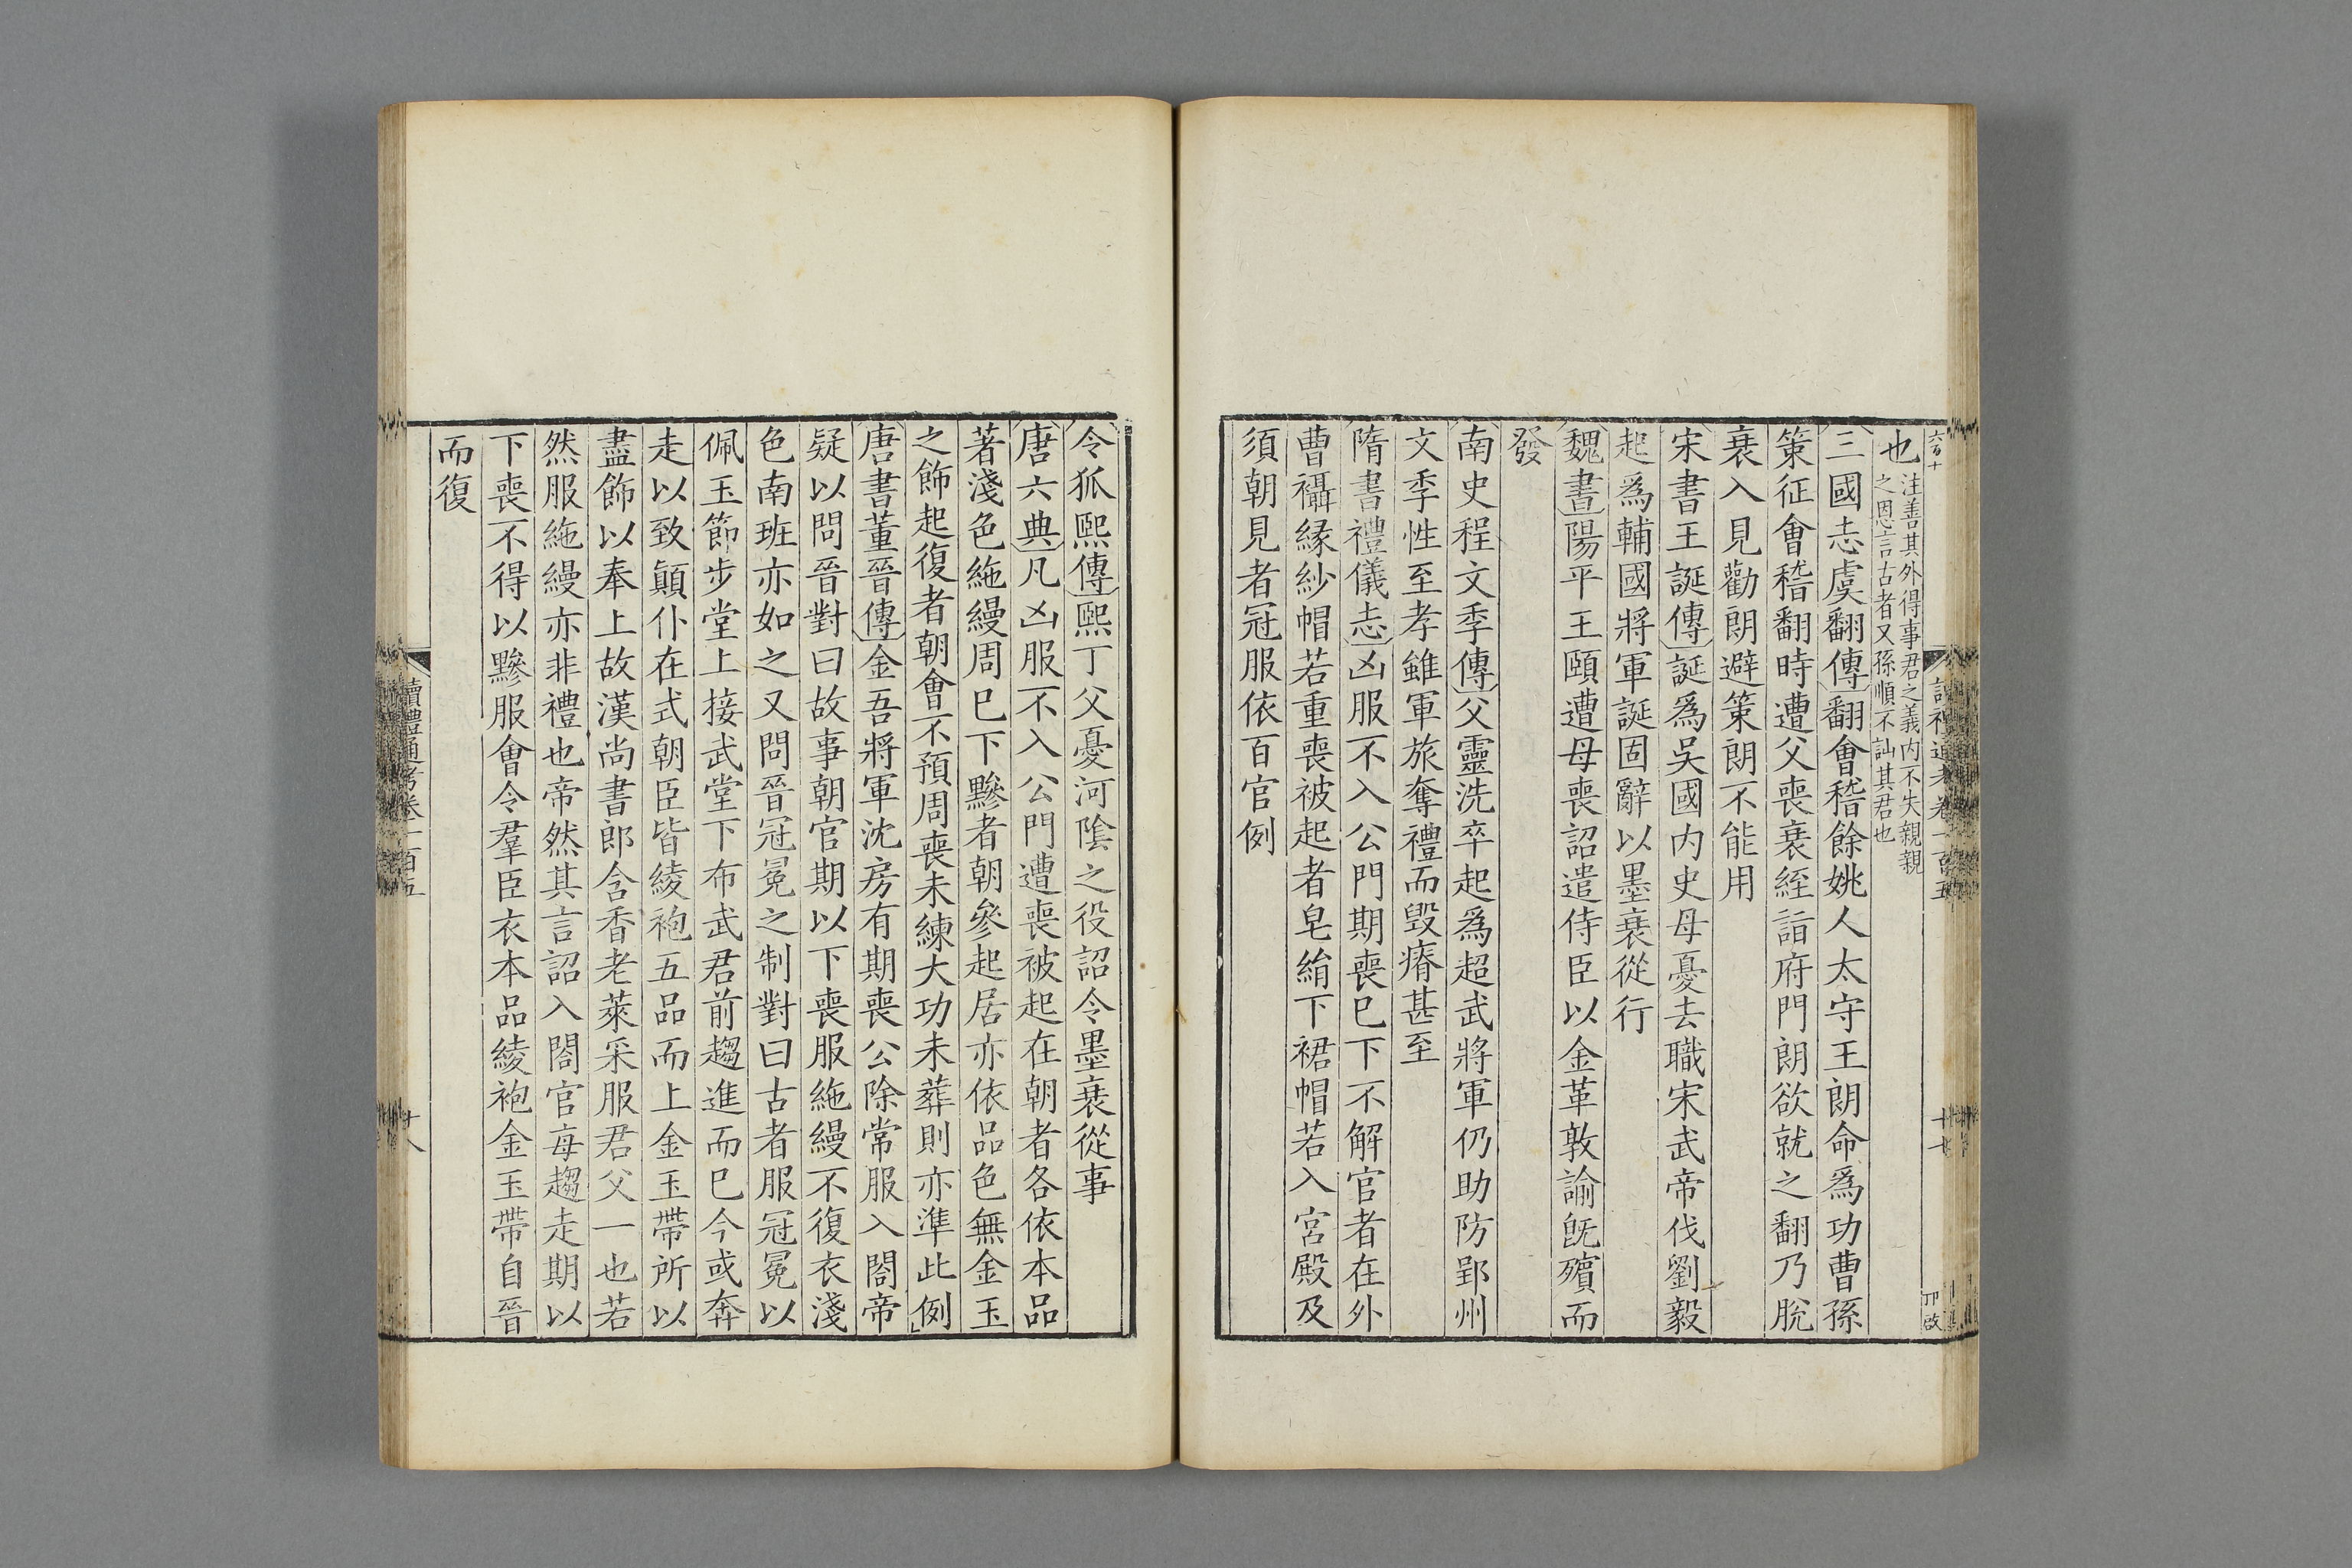 六百十
讀禮通考卷一百五
十七
也注善其外得事君之義内不失親親
之恩言古者又孫順不訕其君也
三國志虞翻傳翻會稽餘姚人太守王朗命爲功曹孫
策征會稽翻時遭父喪衰絰詣府門朗欲就之翻乃脫
衰入見勸朗避策朗不能用
宋書王誕傳誕爲吳國内史母憂去職宋武帝伐劉毅
起爲輔國將軍誕固辭以墨衰從行
魏書陽平王頤遭母喪詔遣侍臣以金革敦諭旣殯而
發
南史程文季傳父靈洗卒起爲超武將軍仍助防郢州
文季性至孝雖軍旅奪禮而毁瘠甚至
隋書禮儀志凶服不入公門期喪已下不解官者在外
曹襵緣紗帽若重喪被起者皂絹下裙帽若入宮殿及
須朝見者冠服依百官例
令狐熙傳熙丁父憂河陰之役詔令墨衰從事
唐六典凡凶服不入公門遭喪被起在朝者各依本品
著淺色絁縵周已下黲者朝參起居亦依品色無金玉
之飾起復者朝會不預周喪未練大功未葬則亦準此例
唐書董晉傳金吾將軍沈房有期喪公除常服入閤帝
疑以問晉對曰故事朝官期以下喪服絁縵不復衣淺
色南班亦如之又問晉冠冕之制對曰古者服冠冕以
佩玉節步堂上接武堂下布武君前趨進而已今或奔
走以致顚仆在式朝臣皆綾袍五品而上金玉帶所以
盡飾以奉上故漢尚書郎含香老萊采服君父一也若
然服絁縵亦非禮也帝然其言詔入閤官毋趨走期以
下喪不得以黲服會令羣臣衣本品綾袍金玉帶自晉
而復
讀禮通考卷一百五
十八